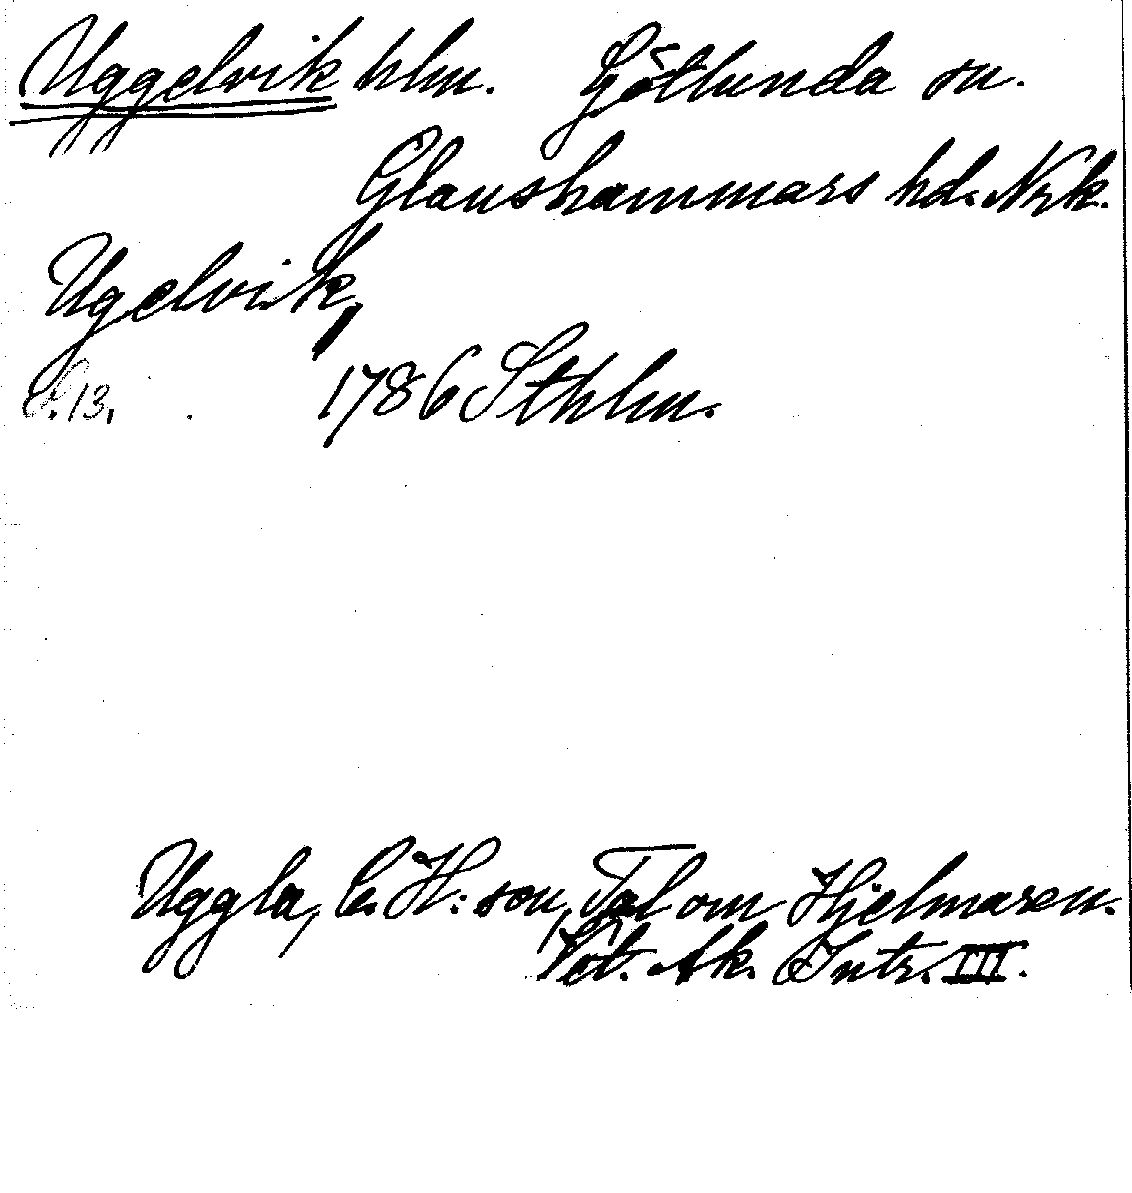 Uggelvik hlm. Götlunda sn.
Glanshammars hd. Nrk.
Ugelvik,
S. 13. 1786 Sthlm.
Uggla, C. H:son, Tal om Hjelmaren.
Vet. Ak. Intr. III.